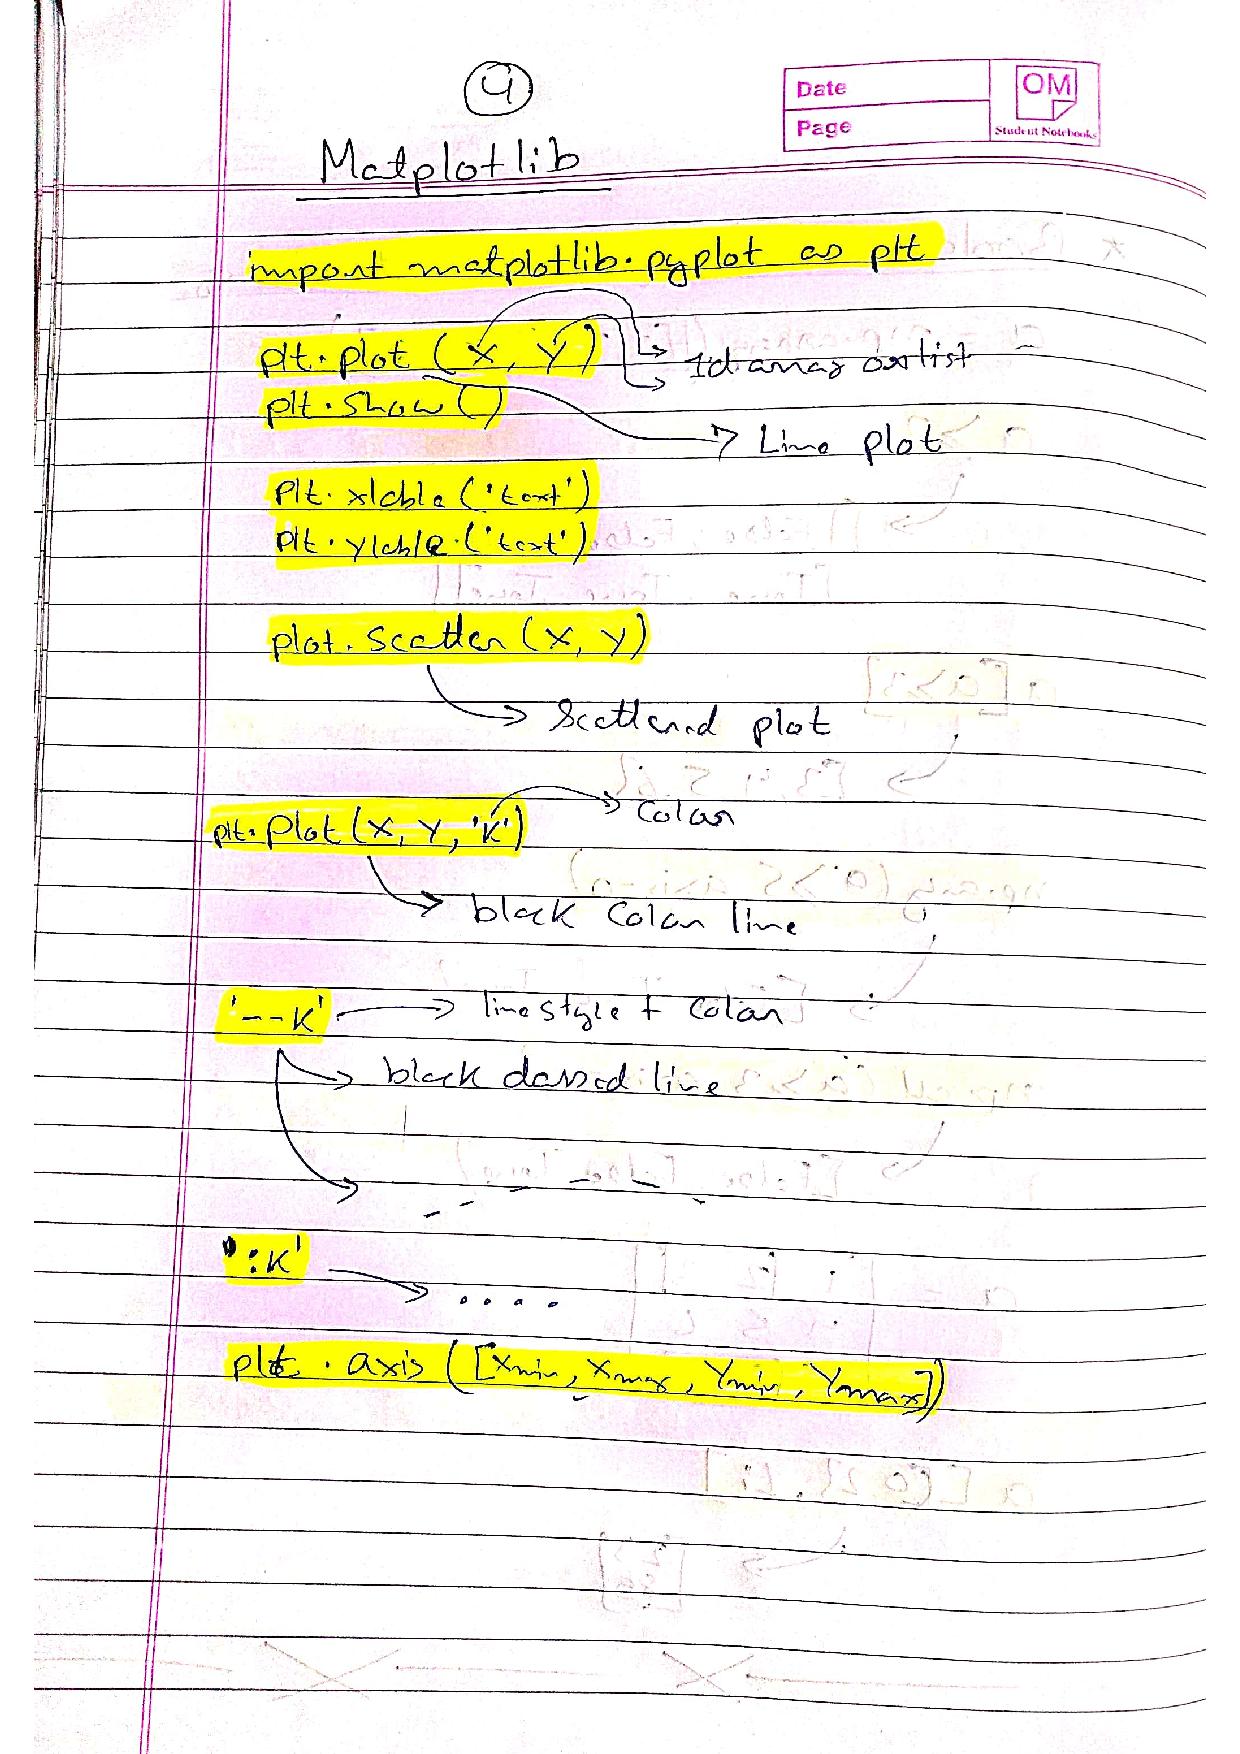 4
Date
Page
OM
Student Notebooks
Matplotlib
import matplotlib.pyplot as plt
plt.plot (X, Y) → 1d array or list
plt.show()
→ Line plot
plt.xlable ('text')
plt.ylable.('text')
plot.scatter (X, Y)
→ Scattered plot
plt.plot (X, Y, 'K') → Color
→ black Color line
'--K' → line style + Color
→ black dassed line
':K' → ....
plt.axis ([Xmin, Xmax, Ymin, Ymax])